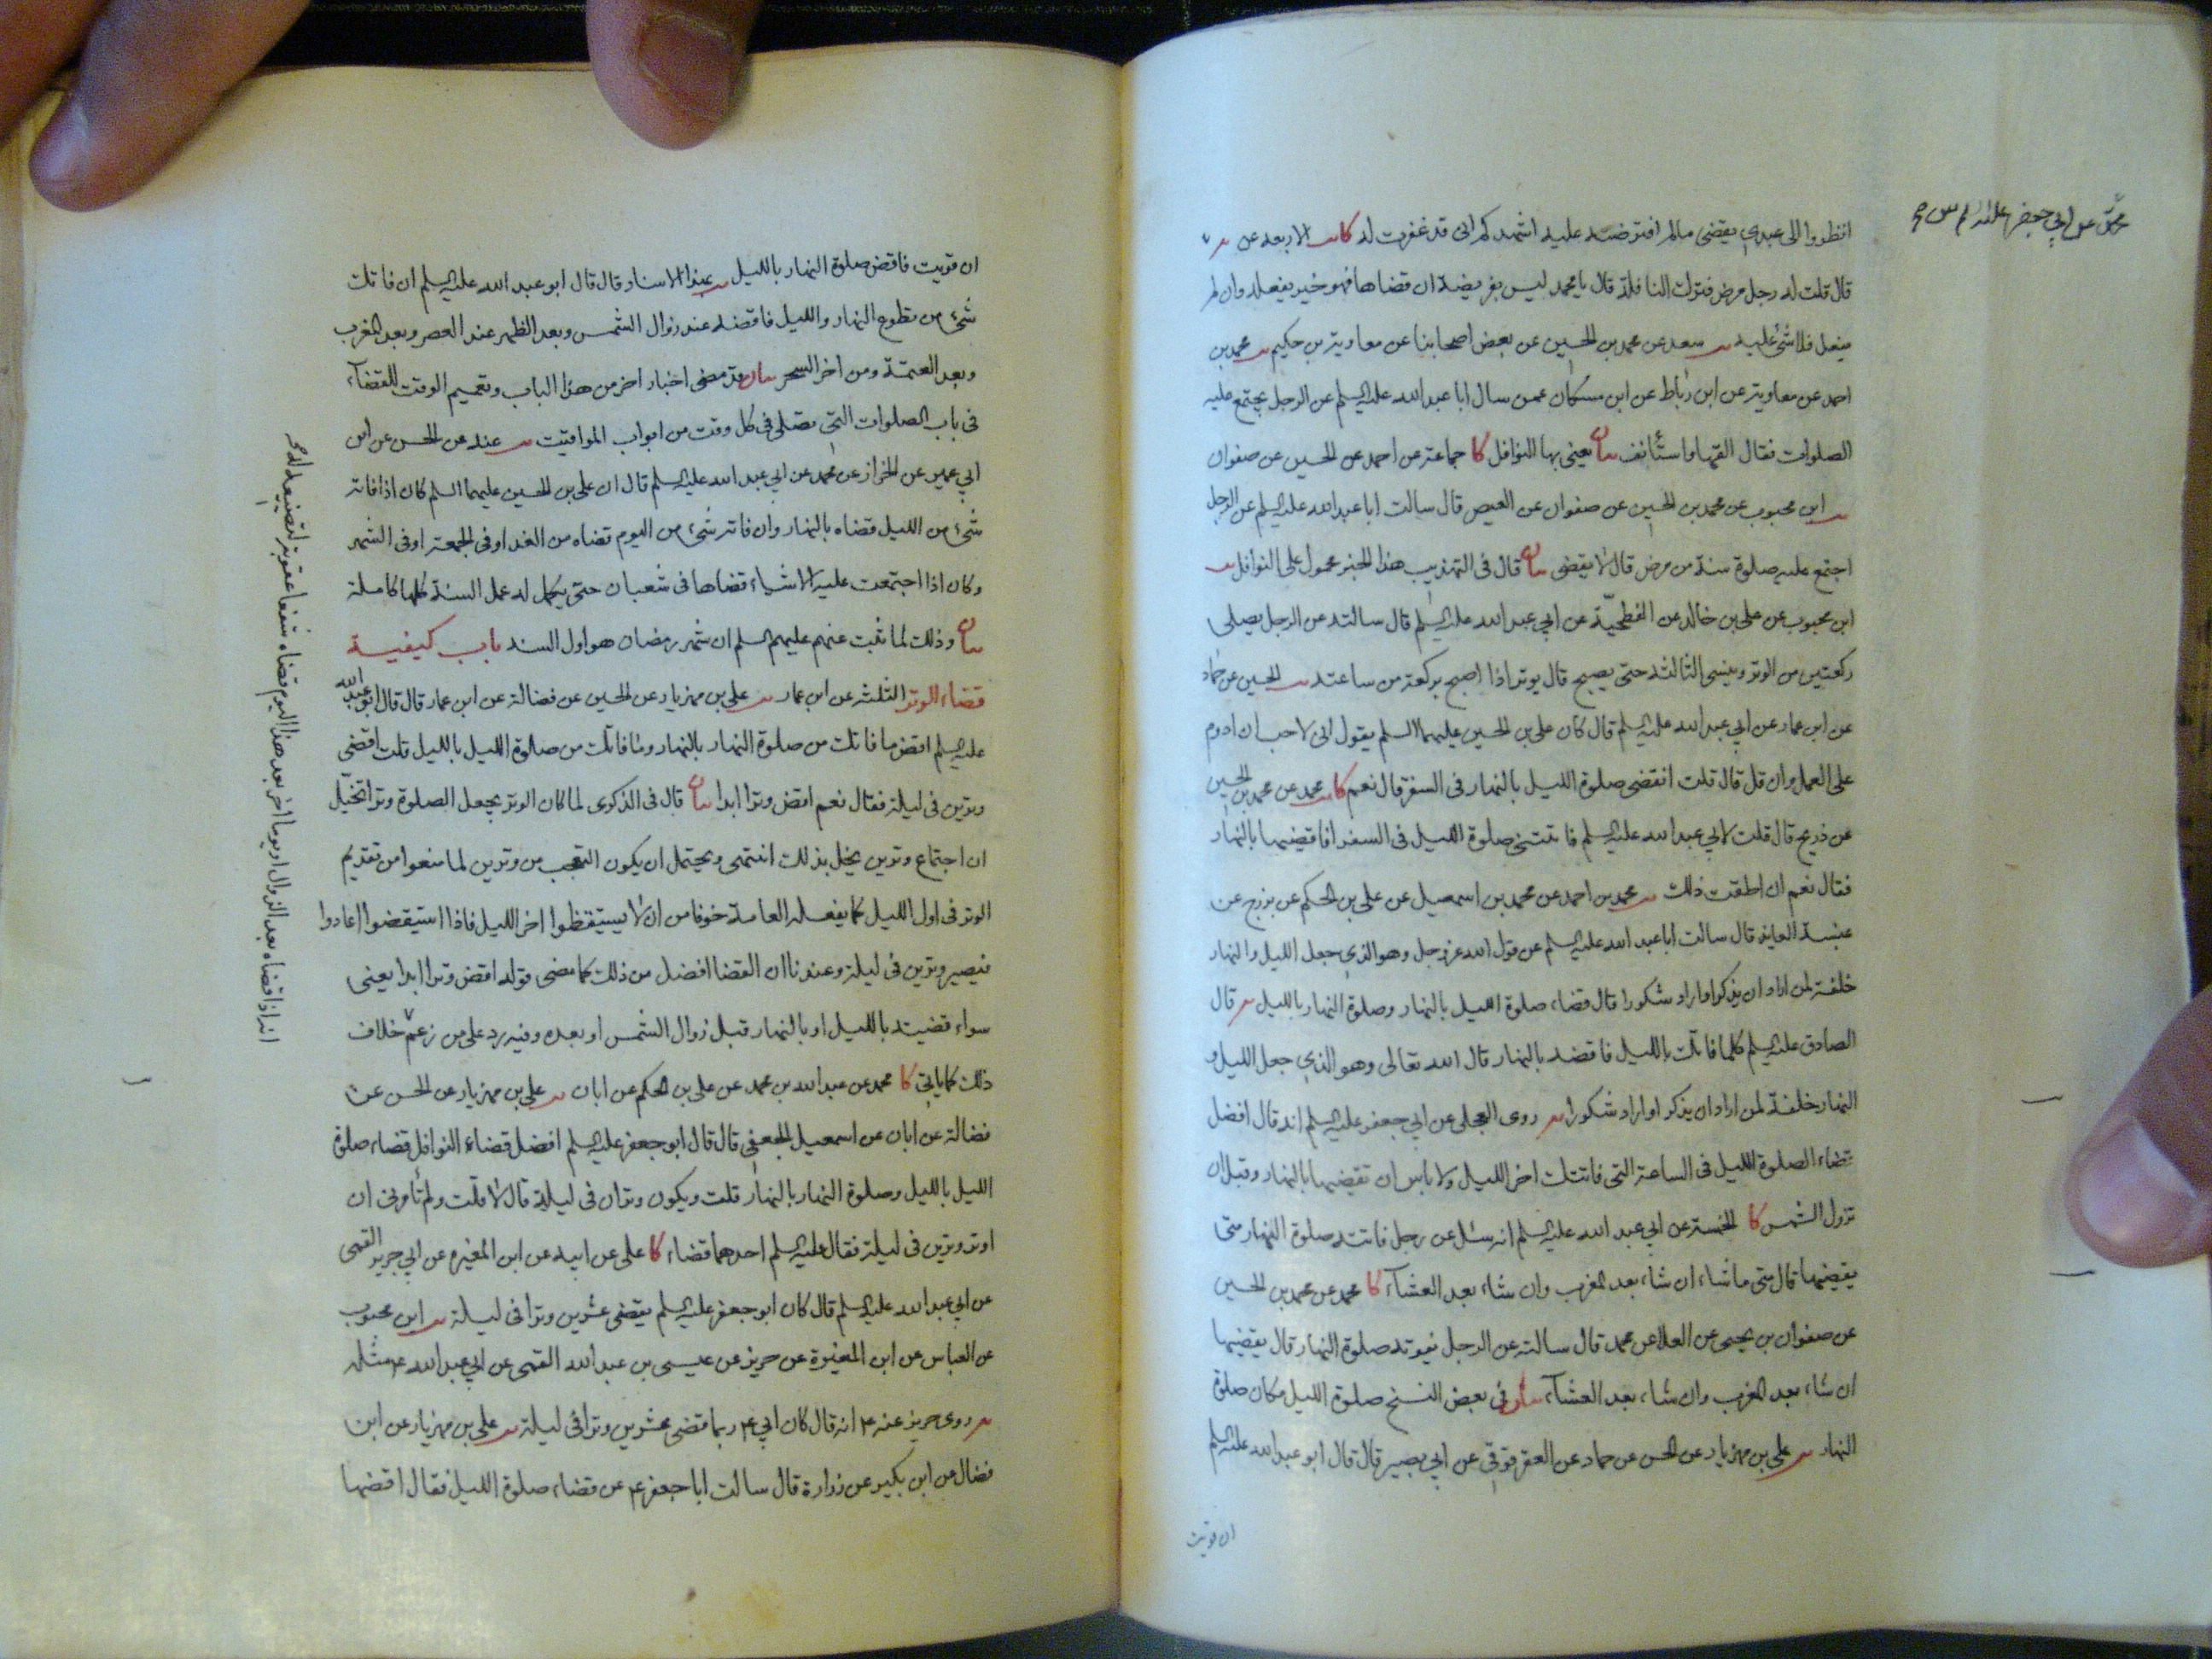 محمد عن ابي جعفر عليه السلم
انظروا الى عبدي يقضى مالم افترضه عليه اشهدكم انى قد غفرت له كا الاربعه عن
قال قلت له رجل مرض فترك النافلة قال يا محمد ليس بفريضة ان قضاها فهو خير يفعله وان لم
يفعل فلا شئ عليه يب سعد عن محمد بن الحسين عن بعض اصحابنا عن معاوية بن حكيم يب محمد بن
احمد عن معاوية عن ابن رباط عن ابن مسكان عمن سال ابا عبد الله عليه السلم عن الرجل يجتمع عليه
الصلوات فقال القها واستأنف بيان يعنى بها النوافل كا جماعة عن احمد عن الحسين عن صفوان
يب ابن محبوب عن محمد بن الحسين عن صفوان عن العيص قال سالت ابا عبد الله عليه السلم عن الرجل
اجتمع عليه صلوة سنة من مرض قال لا يقضى بيان قال فى التهذيب هذا الخبر محمول على النوافل يب
ابن محبوب عن على بن خالد عن الفطحية عن ابي عبد الله عليه السلم قال سالته عن الرجل يصلى
ركعتين من الوتر وينسى الثالثة حتى يصبح قال يوتر اذا اصبح بركعة من ساعته يب الحسين عن حماد
عن ابن عمار عن ابي عبد الله عليه السلم قال كان على بن الحسين عليهما السلم يقول انى لاحب ان ادوم
على العمل وان قل قال قلت انقضى صلوة الليل بالنهار فى السفر قال نعم كا يب محمد عن محمد بن الحسين
عن ذريح قال قلت لابي عبد الله عليه السلم فاتتنى صلوة الليل فى السفر افاقضيها بالنهار
فقال نعم ان اطقت ذلك يب محمد بن احمد عن محمد بن اسمعيل عن على بن الحكم عن بزرج عن
عنبسة العابد قال سالت ابا عبد الله عليه السلم عن قول الله عز وجل وهو الذي جعل الليل والنهار
خلفة لمن اراد ان يذكر او اراد شكورا قال قضاء صلوة الليل بالنهار وصلوة النهار بالليل يه قال
الصادق عليه السلم كلما فاتك بالليل فاقضه بالنهار قال الله تعالى وهو الذي جعل الليل و
النهار خلفة لمن اراد ان يذكر او اراد شكورا يه روى العجلى عن ابي جعفر عليه السلم انه قال افضل
قضاء الصلوة الليل فى الساعة التى فاتتك اخر الليل ولا باس ان تقضيها بالنهار وقبل ان
تزول الشمس كا الخمسة عن ابي عبد الله عليه السلم انه سئل عن رجل فاتته صلوة النهار متى
يقضيها قال متى ما شاء ان شاء بعد المغرب وان شاء بعد العشاء كا محمد عن محمد بن الحسين
عن صفوان بن يحيى عن العلا عن محمد قال سالته عن الرجل يفوته صلوة النهار قال يقضيها
ان شاء بعد المغرب وان شاء بعد العشاء بيان فى بعض النسخ صلوة الليل مكان صلوة
النهار يب على بن مهزيار عن الحسن عن حماد عن العقرقوفى عن ابي بصير قال قال ابو عبد الله عليه السلم
ان قويت
ان قويت فاقض صلوة النهار بالليل يب بهذا الاسناد قال قال ابو عبد الله عليه السلم ان فاتك
شئ من تطوع النهار والليل فاقضه عند زوال الشمس وبعد الظهر عند العصر وبعد المغرب
وبعد العتمة ومن اخر السحر بيان قد مضى اخبار اخر من هذا الباب وتعميم الوقت للقضاء
فى باب الصلوات التى تصلى فى كل وقت من ابواب المواقيت يب عنه عن الحسن عن ابن
ابي عمير عن الخزاز عن محمد عن ابي عبد الله عليه السلم قال ان على بن الحسين عليهما السلم كان اذا فاته
شئ من الليل قضاه بالنهار وان فاته شئ من اليوم قضاه من الغد او فى الجمعة او فى الشهر
وكان اذا اجتمعت عليه الاشياء قضاها فى شعبان حتى يكمل له عمل السنة كلها كاملة
بيان وذلك لما ثبت عنهم عليهم السلم ان شهر رمضان هو اول السنة باب كيفية
قضاء الوتر الثلثة عن ابن عمار يب على بن مهزيار عن الحسين عن فضالة عن ابن عمار قال قال ابو عبد الله
عليه السلم اقض ما فاتك من صلوة النهار بالنهار وما فاتك من صلوة الليل بالليل قلت اقضى
وترين فى ليلة فقال نعم اقض وترا ابدا بيان قال فى الذكرى لما كان الوتر يجعل الصلوة وترا تخيل
ان اجتماع وترين يخل بذلك انتهى ويحتمل ان يكون التعجب من وترين لما منعوا من تقديم
الوتر فى اول الليل كما يفعله العامة خوفا من ان لا يستيقظوا اخر الليل فاذا استيقضوا اعادوا
فيصير وترين فى ليلة وعندنا ان القضا افضل من ذلك كما مضى قوله اقض وترا ابدا يعنى
سواء قضيته بالليل او بالنهار قبل زوال الشمس او بعده وفيه رد على من زعم خلاف
ذلك كما ياتي كا محمد عن عبد الله بن محمد عن على بن الحكم عن ابان يب على بن مهزيار عن الحسن عن
فضالة عن ابان عن اسمعيل الجعفى قال قال ابو جعفر عليه السلم افضل قضاء النوافل قضاء صلوة
الليل بالليل وصلوة النهار بالنهار قلت ويكون وتران فى ليلة قال لا قلت ولم تأمرنى ان
اوتر وترين فى ليلة فقال عليه السلم احدهما قضاء كا على عن ابيه عن ابن المغيرة عن ابي جرير القمى
عن ابي عبد الله عليه السلم قال كان ابو جعفر عليه السلم يقضى عشرين وترا فى ليلة يب ابن محبوب
عن العباس عن ابن المغيرة عن حريز عن عيسى بن عبد الله القمى عن ابي عبد الله ع مثله
يه روى حريز عنه ع انه قال كان ابي ع ربما قضى عشرين وترا فى ليلة يب على بن مهزيار عن ابن
فضال عن ابن بكير عن زرارة قال سالت ابا جعفر ع عن قضاء صلوة الليل فقال اقضها
انه اذا قضاه بعد الزوال او يوما اخر بعد هذا اليوم قضاه شفعا عقوبة لتضييعه له